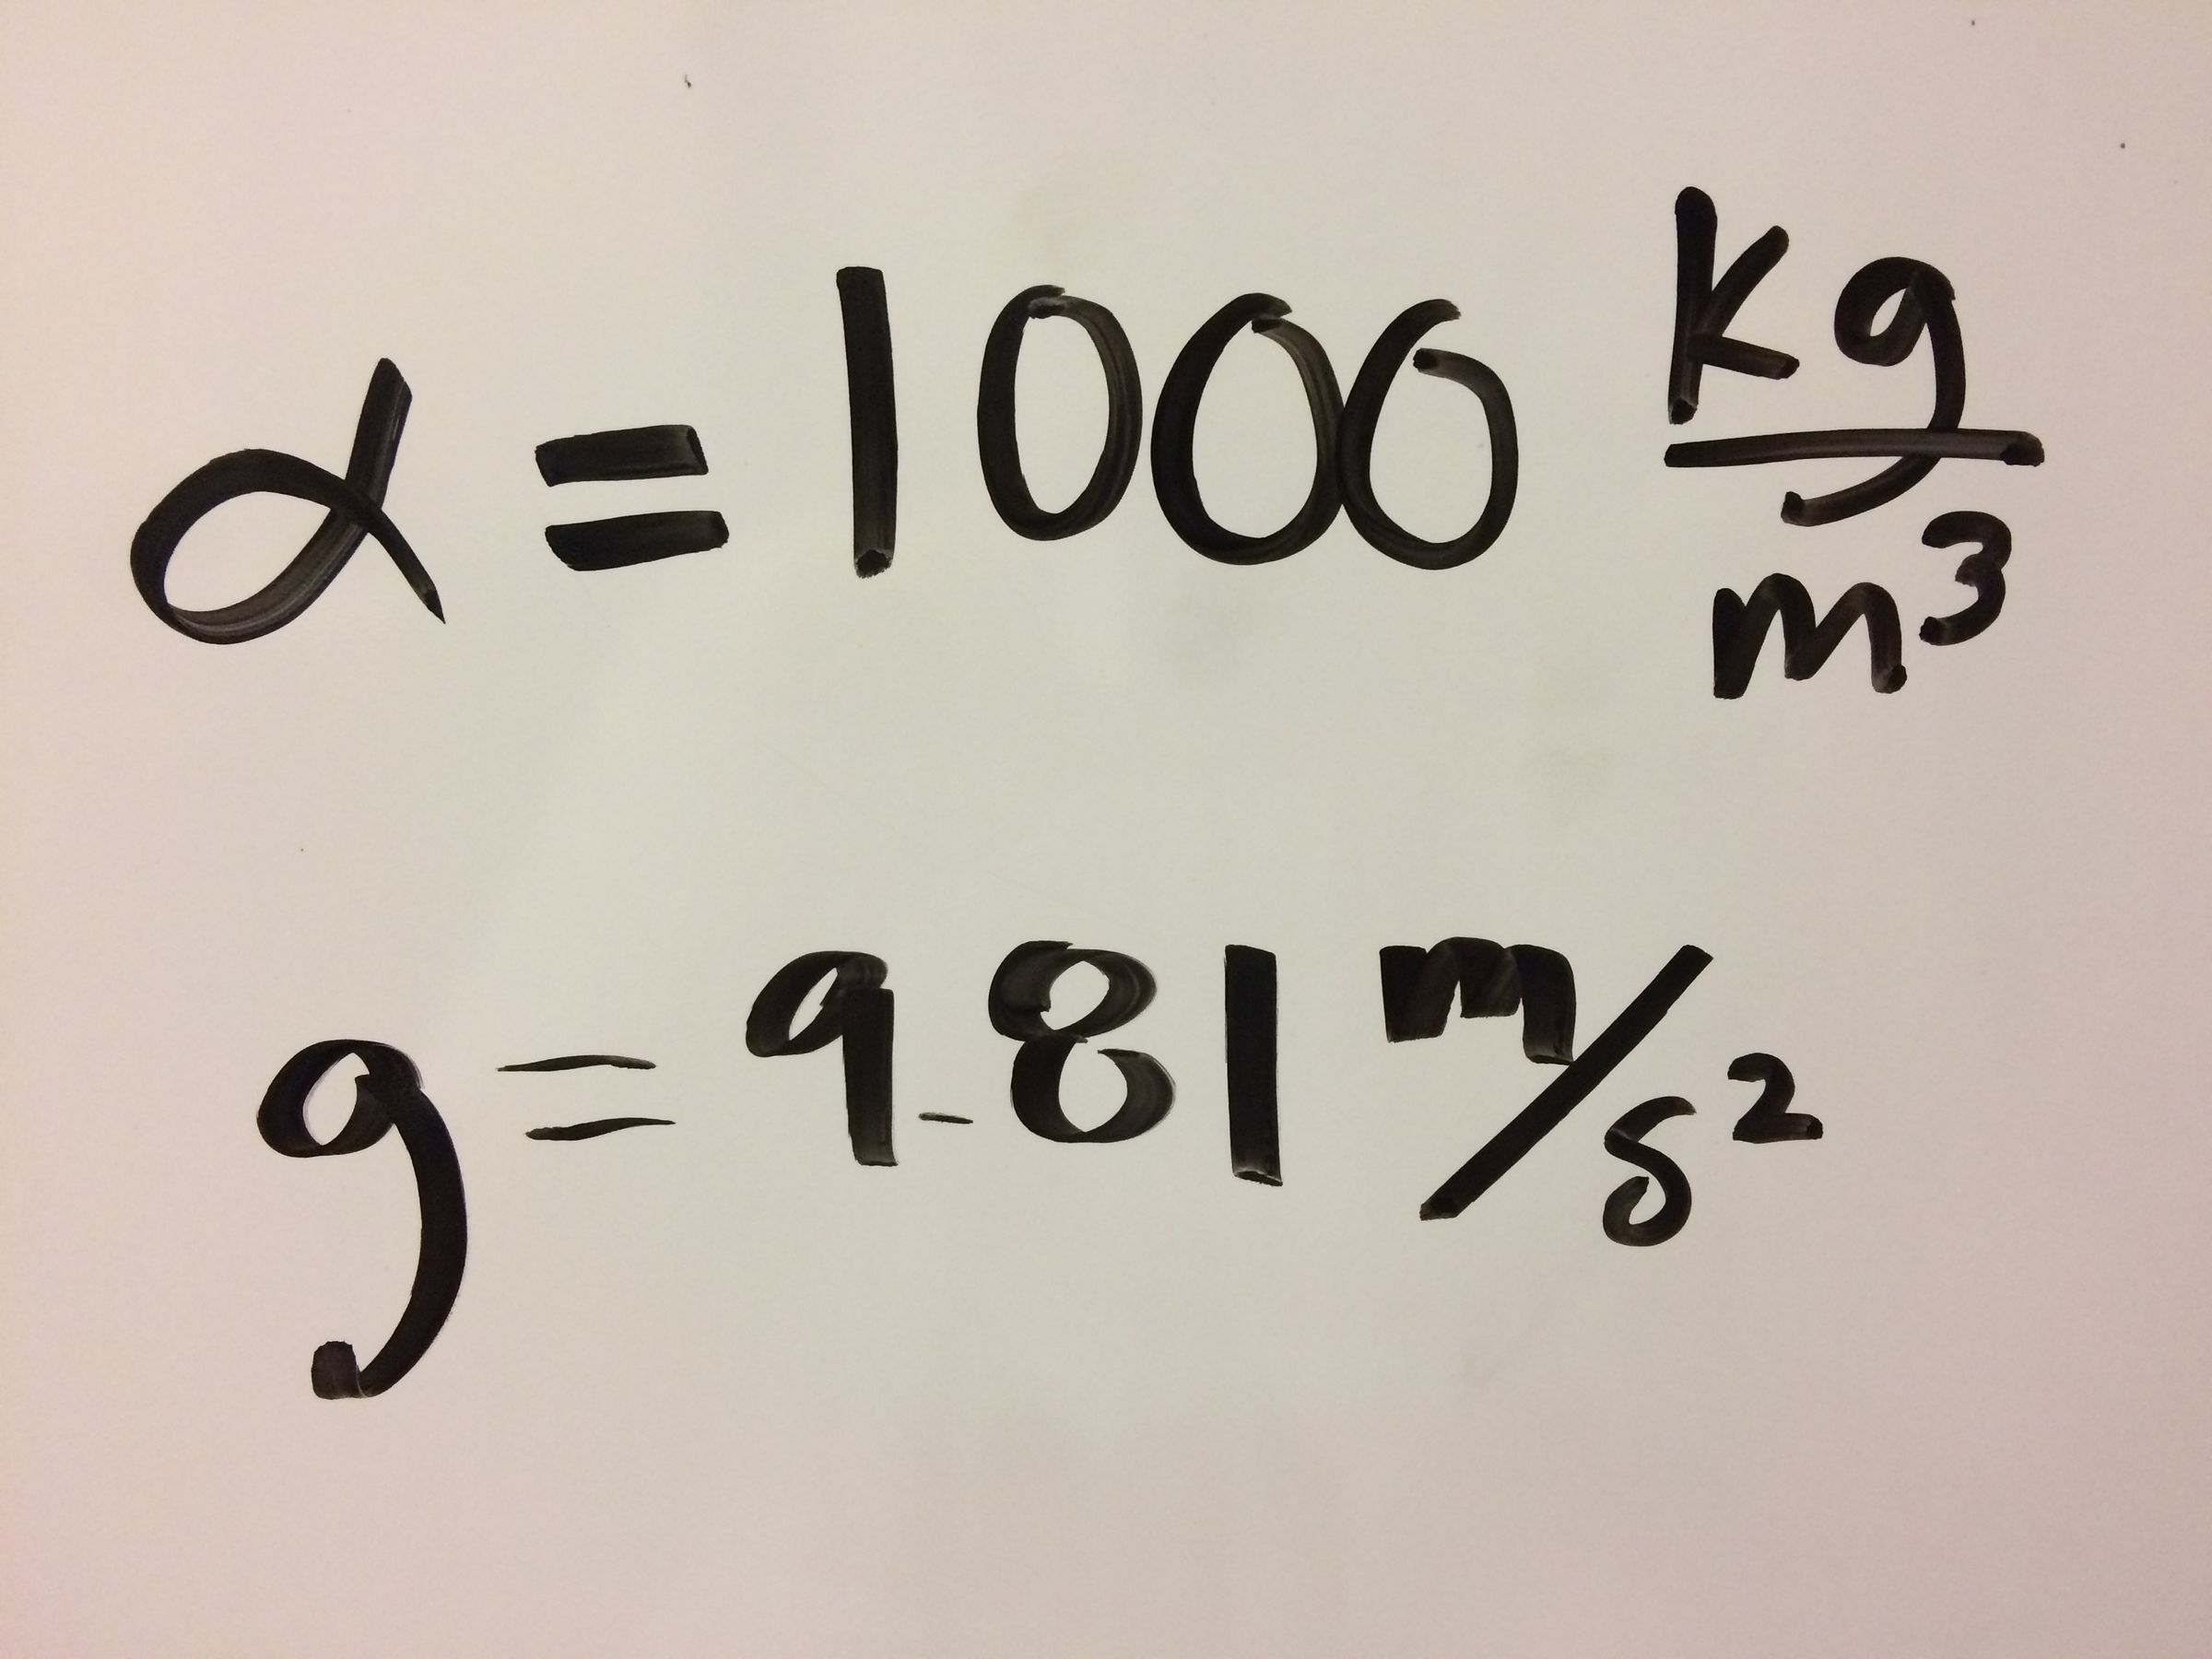 α = 1000 kg/m³
g = 9.81 m/s²